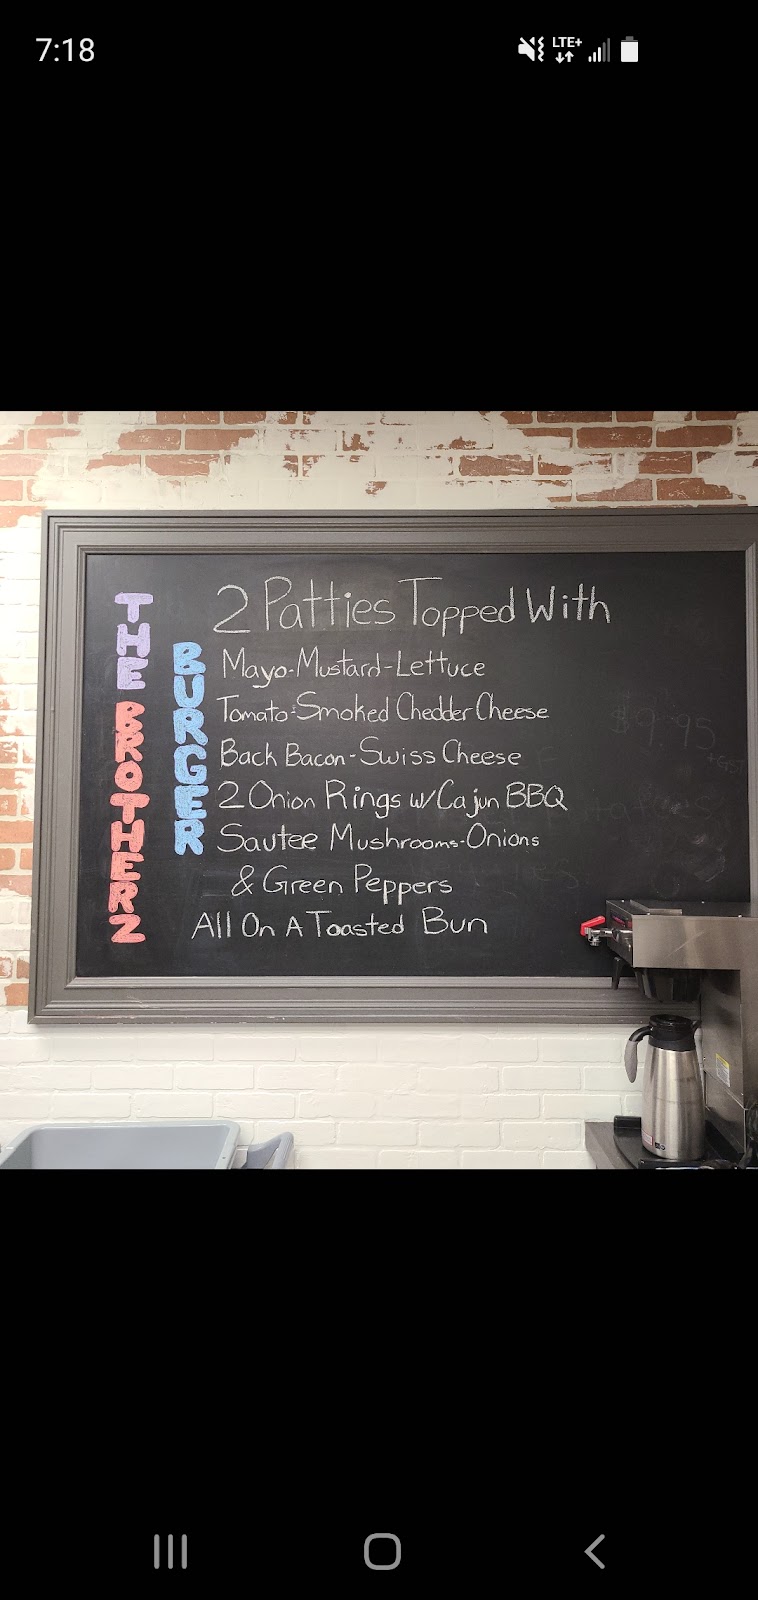 7:18
LTE+
THE BROTHERZ
BURGER
2 Patties Topped With
Mayo-Mustard-Lettuce
Tomato-Smoked Chedder Cheese
Back Bacon-Swiss Cheese
2 Onion Rings w/Cajun BBQ
Sautee Mushrooms-Onions
& Green Peppers
All On A Toasted Bun
$9.95